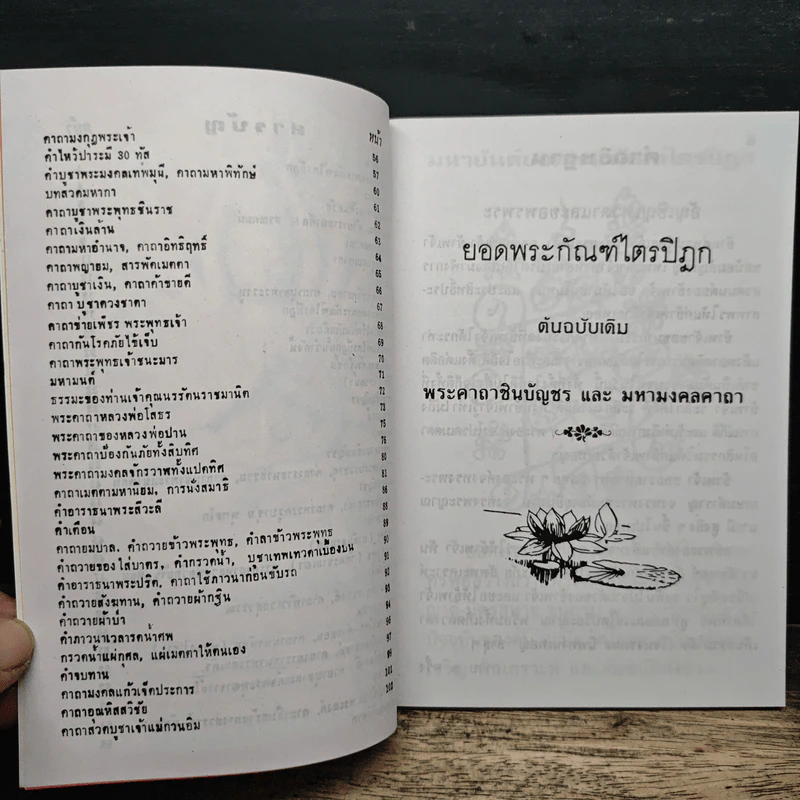 หน้า
คาถามงกุฎพระเจ้า
56
คำไหว้บาระมี 30 ทัส
57
คำบูชาพระมงคลเทพมุนี, คาถามหาพิทักษ์
60
บทสวดมหากา
61
คาถาบูชาพระพุทธชินราช
62
คาถาเงินล้าน
63
คาถามหาอำนาจ, คาถาอิทธิฤทธิ์
64
คาถาพญายม, สารพัดเมตตา
65
คาถาบูชาเงิน, คาถาค้าขายดี
66
คาถา บูชาดวงชาตา
67
คาถาข่ายเพ็ชร พระพุทธเจ้า
68
คาถากันโรคภัยไข้เจ็บ
69
คาถาพระพุทธเจ้าชนะมาร
70
มหามนต์
71
ธรรมะของท่านเจ้าคุณนรรัตนราชมานิต
72
พระคาถาหลวงพ่อโสธร
73
พระคาถาของหลวงพ่อปาน
75
พระคาถาป้องกันภัยทั้งสิบทิศ
76
พระคาถามงคลจักรวาฬทั้งแปดทิศ
80
คาถาเมตตามหานิยม, การนั่งสมาธิ
81
คำอาราธนาพระสีวะลี
86
คำเตือน
88
คาถายมบาล. คำถวายข้าวพระพุทธ, คำลาข้าวพระพุทธ
89
คำถวายของใส่บาตร, คำกรวดน้ำ, บูชาเทพเทวดาเบื้องบน
90
คำอาราธนาพระปริต. คาถาใช้ภาวนาก่อนขับรถ
91
คำถวายสังฆทาน, คำถวายผ้ากฐิน
92
คำถวายผ้าป่า
93
คำภาวนาเวลารดน้ำศพ
94
กรวดน้ำแผ่กุศล, แผ่เมตตาให้ตนเอง
96
คำจบทาน
97
คาถามงคลแก้วเจ็ดประการ
99
คาถาอุณหิสสวิชัย
101
คาถาสวดบูชาเจ้าแม่กวนอิม
102
ยอดพระกัณฑ์ไตรปิฎก
ต้นฉบับเดิม
พระคาถาชินบัญชร และ มหามงคลคาถา